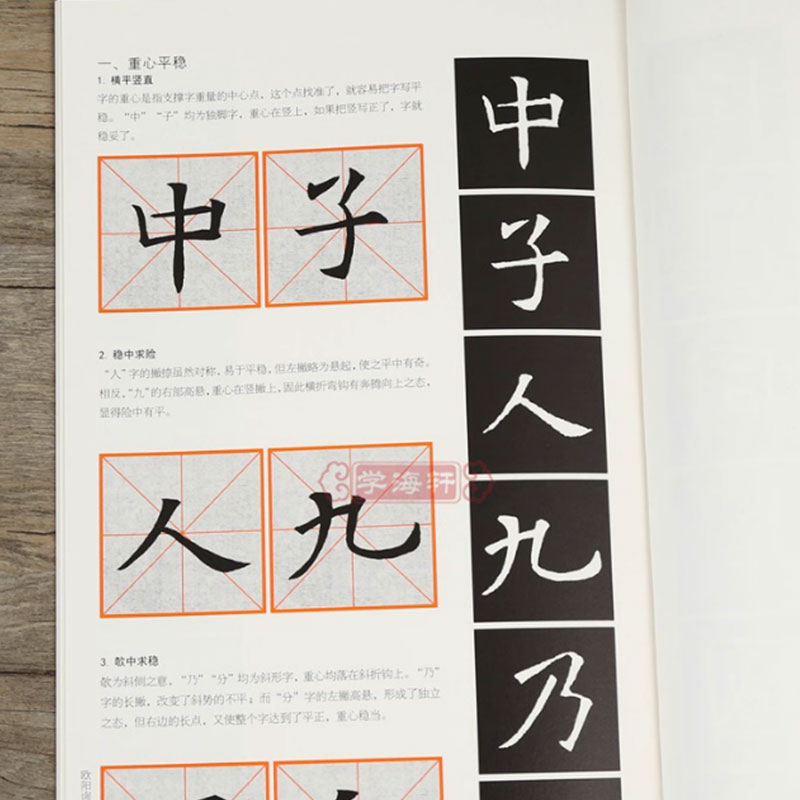 一、重心平稳
1. 横平竖直
字的重心是指支撑字重量的中心点，这个点找准了，就容易把字写平
稳。“中”“子”均为独脚字，重心在竖上，如果把竖写正了，字就
稳妥了。
中 子
2. 稳中求险
“人”字的撇捺虽然对称，易于平稳，但左撇略为悬起，使之平中有奇。
相反，“九”的右部高悬，重心在竖撇上，因此横折弯钩有奔腾向上之态，
显得险中有平。
人 九
学海轩
3. 欹中求稳
欹为斜侧之意，“乃”“分”均为斜形字，重心均落在斜折钩上。“乃”
字的长撇，改变了斜势的不平；而“分”字的左撇高悬，形成了独立
之态，但右边的长点，又使整个字达到了平正，重心稳当。
中
子
人
九
乃
欧阳询